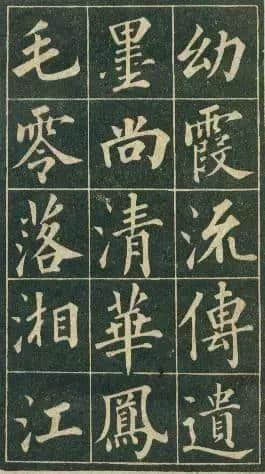 幼霞流傳遺
墨尚清華鳳
毛零落湘江